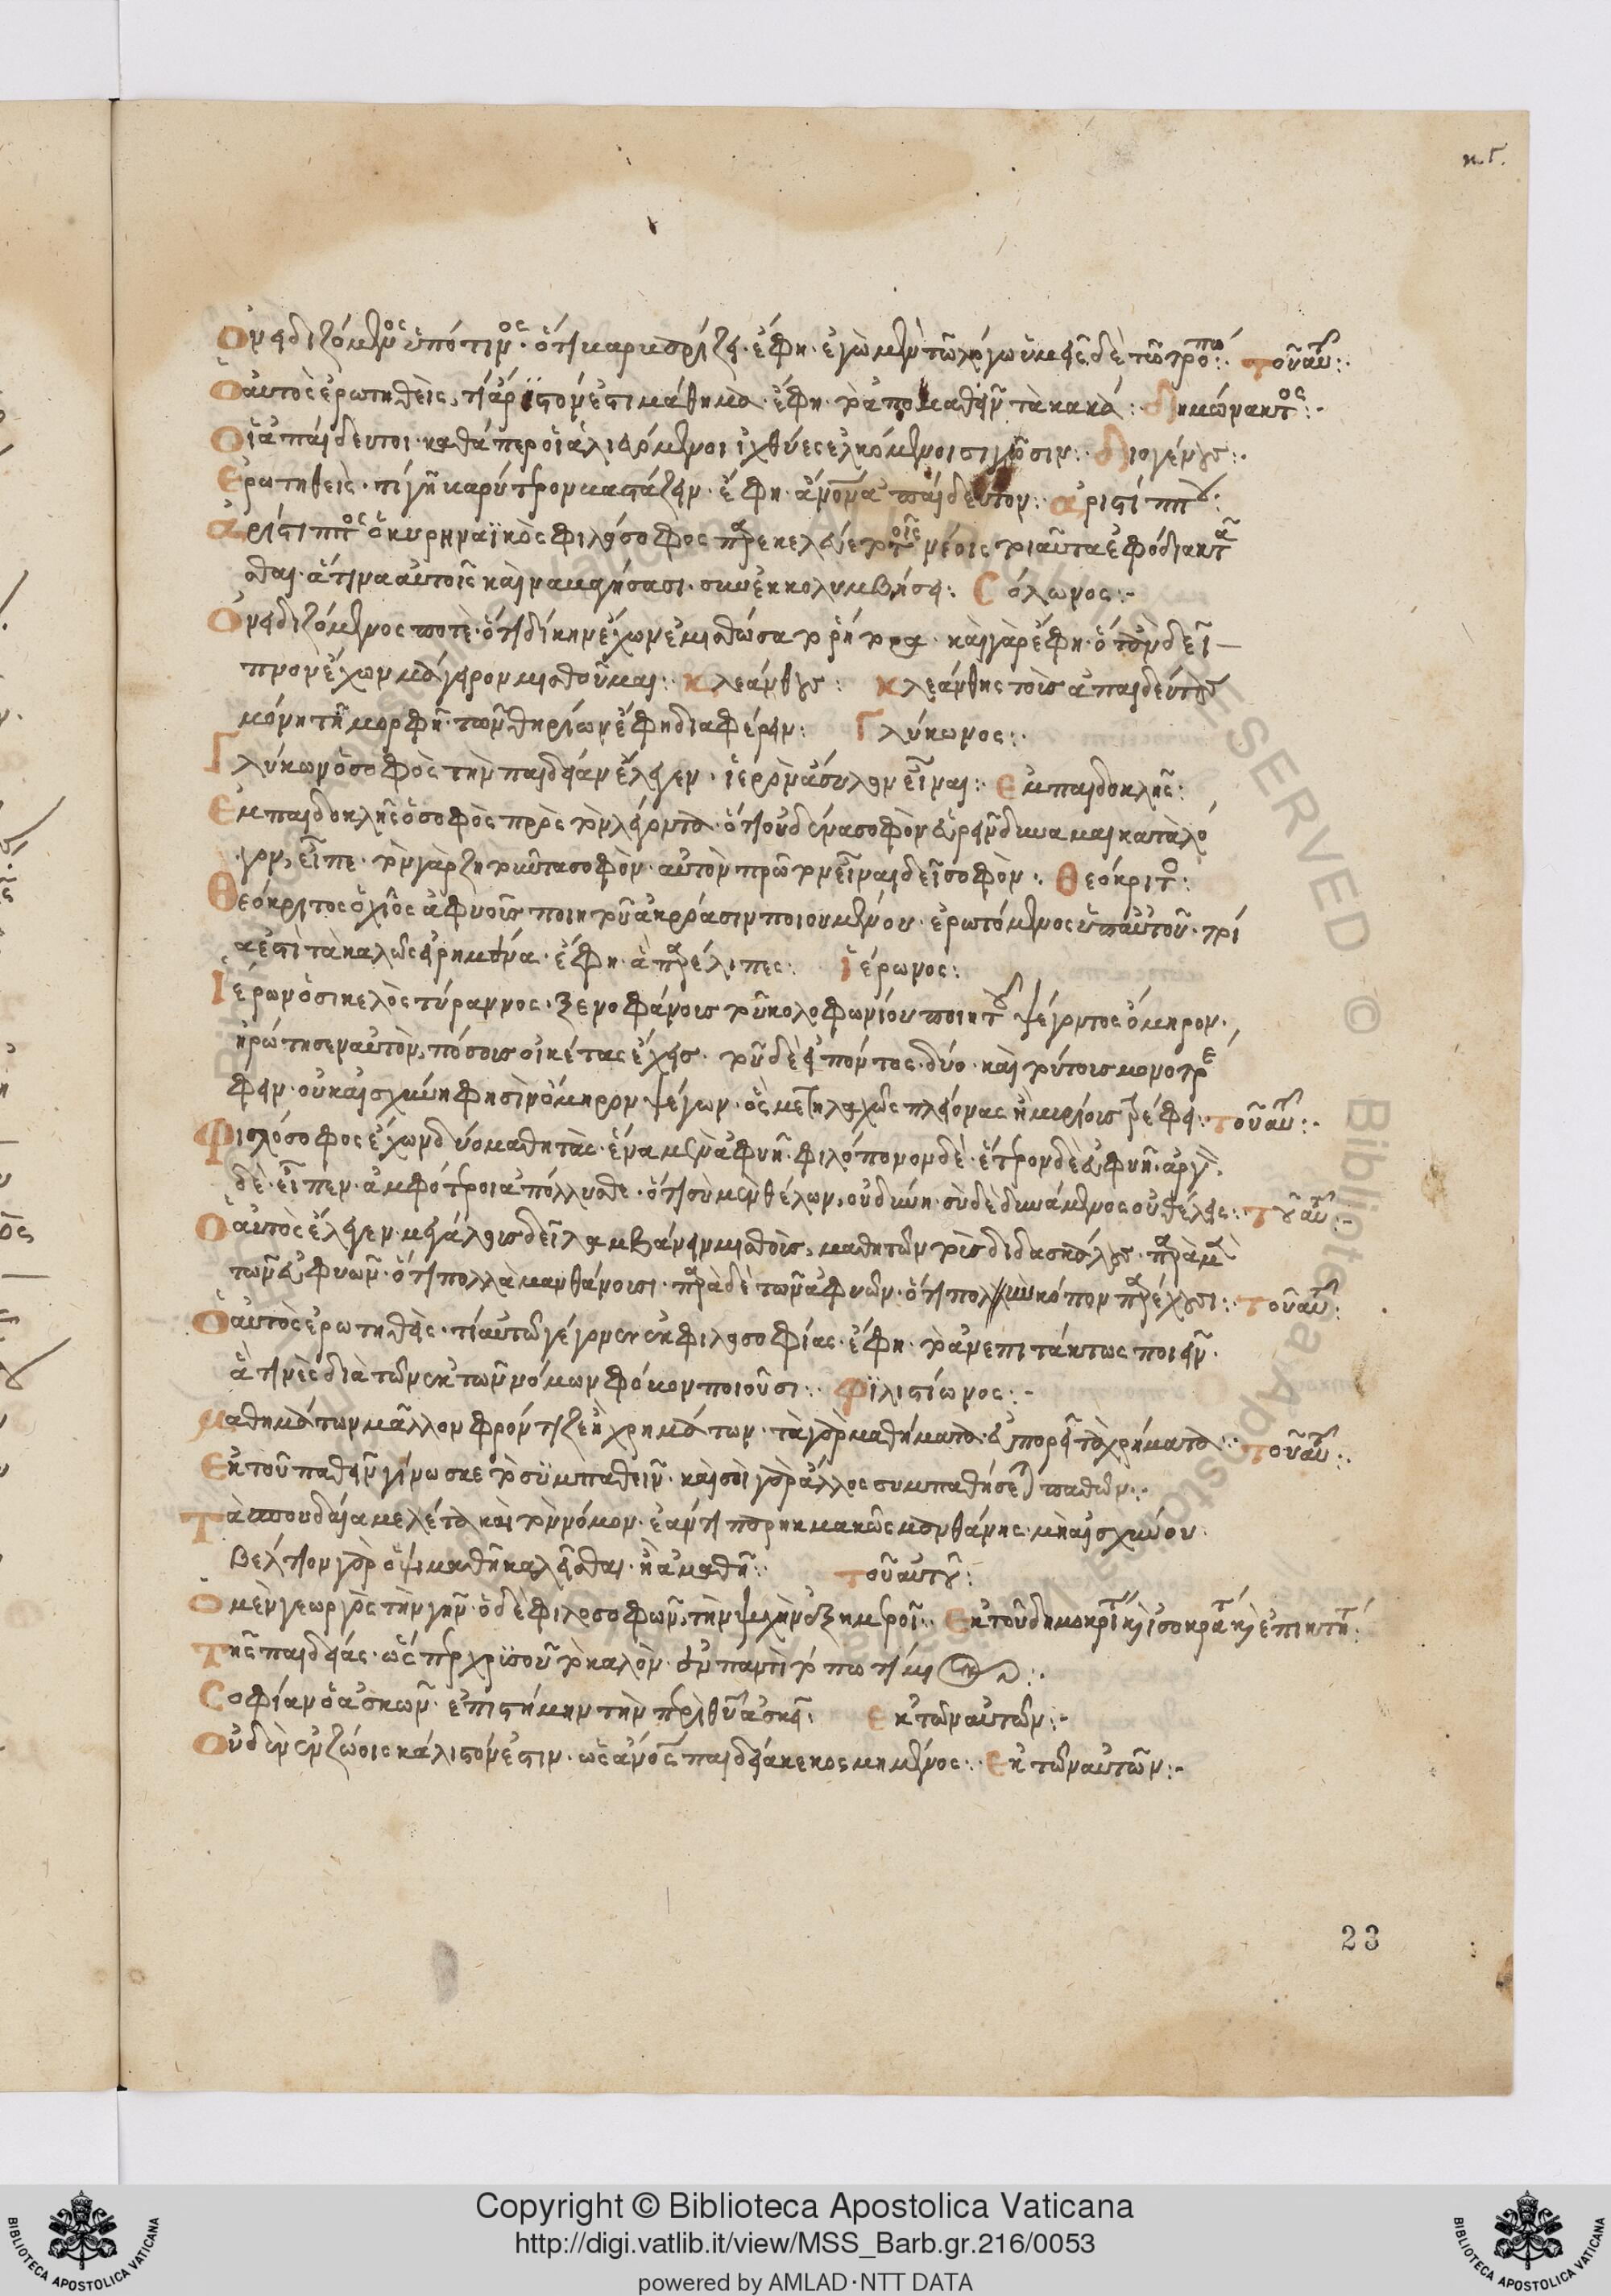 κγ.
Ὀνειδιζόμενος ὑπό τινος· ὅτι βαρβαρίζει· ἔφη· ἐγὼ μὲν τῷ λόγῳ ὑμεῖς δὲ τῷ τρόπω:. τοῦ αὐτοῦ:.
Ὁ αὐτὸς ἐρωτηθεὶς, τί ἄριστόν ἐστι μάθημα· ἔφη· τὸ ἀπομαθεῖν τὰ κακά: Δημώνακτος:-
Οἱ ἀπαίδευτοι· καθάπερ οἱ ἁλιευόμενοι ἰχθύες ἑλκόμενοι σιγῶσιν:. Διογένους:.
Ἐρωτηθεὶς· τί γῆ βαρύτερον βαστάζειν· ἔφη· ἄνον ἀπαίδευτον:. Ἀριστίππου:
Ἀρίστιππος ὁ κυρηναϊκὸς φιλόσοφος παρεκελεύετο τοῖς νέοις τοιαῦτα ἐφόδια κτᾶ
σθαι· ἅτινα αὐτοῖς καὶ ναυαγήσασι· συνεκκολυμβήσει: Σόλωνος:-
Ὀνειδιζόμενος ποτὲ· ὅτι δίκην ἔχων ἐμισθώσατο ῥήτορα· καὶ γὰρ ἔφη· ὅταν δεῖ
πνον ἔχω μάγειρον μισθοῦμαι: Κλεάνθους: Κλεάνθης τοὺς ἀπαιδεύτους
μόνη τῆ μορφῆ τῶν θηρίων ἔφη διαφέρειν: Γλύκωνος:.
Γλύκων ὁ σοφὸς τὴν παιδείαν ἔλεγεν· ἱερὸν ἄσυλον εἶναι:. Ἐμπαιδοκλῆς:
Ἐμπαιδοκλῆς ὁ σοφὸς πρὸς τὸν λέγοντα· ὅτι οὐδένα σοφὸν εὑρεῖν δύναμαι κατὰ λό
γον, εἶπε· τὸν γὰρ ζητοῦντα σοφὸν· αὐτὸν πρῶτον εἶναι δεῖ σοφὸν:. Θεόκριτος:
Θεόκριτος ὁ χῖος ἀφυοῦς ποιητοῦ ἀκρόασιν ποιουμένου· ἐρωτόμενος ὑπ' αὐτοῦ· ποῖ
α ἐστὶ τὰ καλῶς εἰρημένα· ἔφη· ἃ παρέλιπες: Ἱέρωνος:
Ἱέρων ὁ σικελὸς τύραννος· ξενοφάνους τοῦ κολοφωνίου ποιητοῦ ψέγοντος ὅμηρον·
ἠρώτησεν αὐτὸν, πόσους οἰκέτας ἔχεις· τοῦ δὲ εἰπόντος· δύο· καὶ τούτους μόνο τρέ
φειν· οὐκ αἰσχύνη φησὶν ὅμηρον ψέγων· ὃς μετηλλαχὼς πλείονας ἢ μυρίους τρέφει:. τοῦ αὐτοῦ:.
Φιλόσοφος ἔχων δύο μαθητὰς· ἕνα μὲν ἀφυῆ φιλόπονον δέ· ἕτερον δὲ εὐφυῆ· ἀργὸν
δὲ· εἶπεν· ἀμφότεροι ἀπόλλυσθε· ὅτι σὺ μὲν θέλων, οὐ δύνη· σὺ δὲ δυνάμενος οὐ θέλεις:. τοῦ αὐτοῦ:-
Ὁ αὐτὸς ἔλεγεν μεγάλους δεῖ λαμβάνειν μισθοὺς, μαθητῶν τοὺς διδασκάλους· παρὰ μὲν
τῶν εὐφυῶν· ὅτι πολλὰ μανθάνουσι· παρὰ δὲ τῶν ἀφυῶν· ὅτι πολὺν κόπον παρέχουσι:. τοῦ αὐτοῦ:
Ὁ αὐτὸς ἐρωτηθεὶς· τί αὐτῶ γέγονεν ἐκ φιλοσοφίας· ἔφη· τὸ ἀνεπιτάκτως ποιεῖν·
ἅ τινὲς διὰ τῶν ἐκ τῶν νόμων φόβον ποιοῦσι:. Φιλιστίωνος:-
Μαθημάτων μᾶλλον φρόντιζε ἢ χρημάτων· τὰ γὰρ μαθήματα· εὐπορεῖ τὰ χρήματα:. τοῦ αὐτοῦ:.
Ἐκ τοῦ παθεῖν γίνωσκε τὸ συμπαθεῖν· καὶ σοὶ γὰρ ἄλλος συμπαθήσεται παθών:.
Τὰ σπουδαῖα μελέτα καὶ τὸν νόμον· ἐάν τι πορηκμακὼς μανθάνης· μὴ αἰσχύνου·
βέλτιον γὰρ ὀψιμαθῆ καλεῖσθαι· ἢ ἀμαθῆ:. τοῦ αὐτοῦ:
Ὁ μὲν γεωργὸς τὴν γῆν· ὁ δὲ φιλοσοφῶν, τὴν ψυχὴν ἐξημεροῖ:. Ἐκ τοῦ δημοκρίτου καὶ ἰσοκράτους καὶ ἐπικτήτου:
Τῆς παιδείας· ὥσπερ χρυσοῦ τὸ καλὸν· ἐν παντὶ τόπω τίμιον:.
Σοφίαν ὁ ἀσκῶν· ἐπιστήμην τὴν πρὸ θεοῦ ἀσκεῖ. Ἐκ τῶν αὐτῶν:-
Οὐδὲν ἐν ζώοις κάλιστόν ἐστιν· ὡς ἄνος παιδεία κεκοσμημένος:. Ἐκ τῶν αὐτῶν:-
23
Copyright © Biblioteca Apostolica Vaticana
http://digi.vatlib.it/view/MSS_Barb.gr.216/0053
powered by AMLAD·NTT DATA